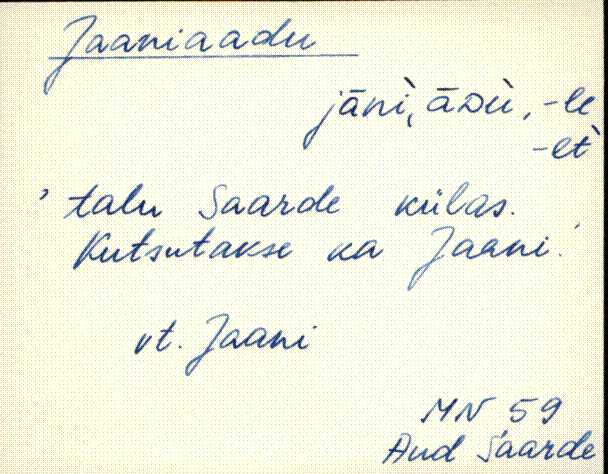 Jaaniaadu
jāǹì, āᴅù, -le
-et̀
' talu Saarde külas.
Kutsutakse ka Jaani.'
vt. Jaani
MN 59
Aud Saarde